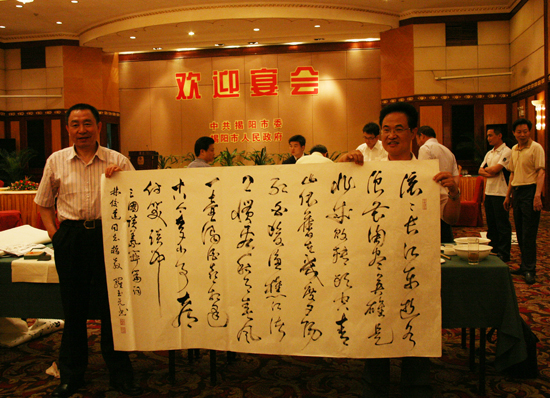 欢迎宴会
中共揭阳市委
揭阳市人民政府
滚滚长江东逝水
浪花淘尽英雄是
非成败转头空青
山依旧在几度夕阳
红白发渔樵江渚
上惯看秋月春风
一壶浊酒喜相逢
古今多少事都
付笑谈中
三國演義
同志